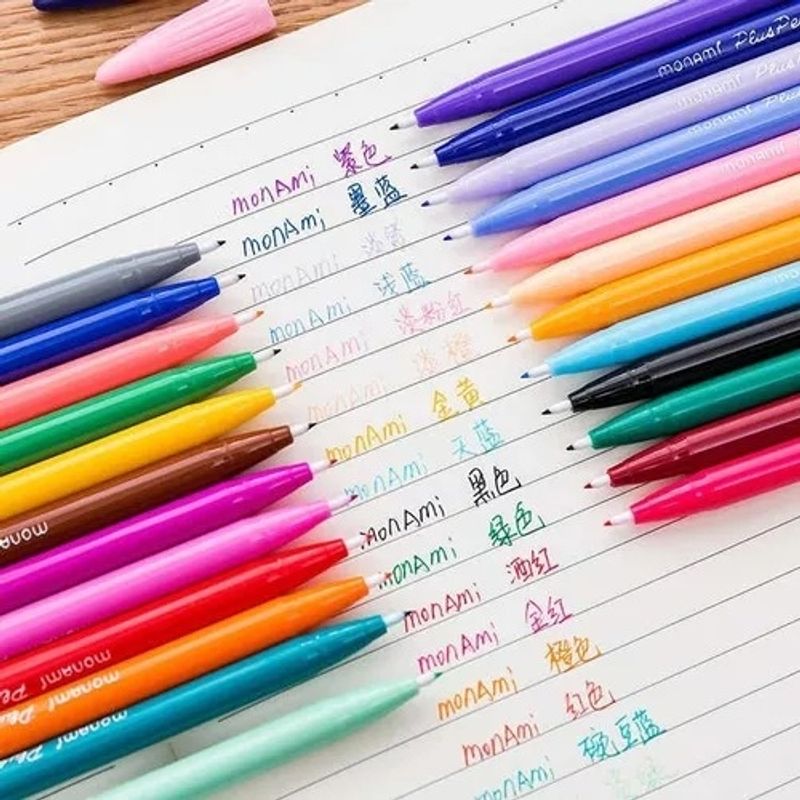 monami Plus Pe
monami Plus Pe
monami Plus
monami
monAmi 紫色
monAmi 墨蓝
monAmi 淡紫
monAmi 浅蓝
monAmi 淡粉红
monAmi 淡橙
monAmi 金黄
monAmi 天蓝
monAmi 黑色
monAmi 绿色
monAmi 酒红
monAmi 金红
monAmi 橙色
monAmi 红色
monAmi 碗豆蓝
monami
monami Pe
monami Plu
monami